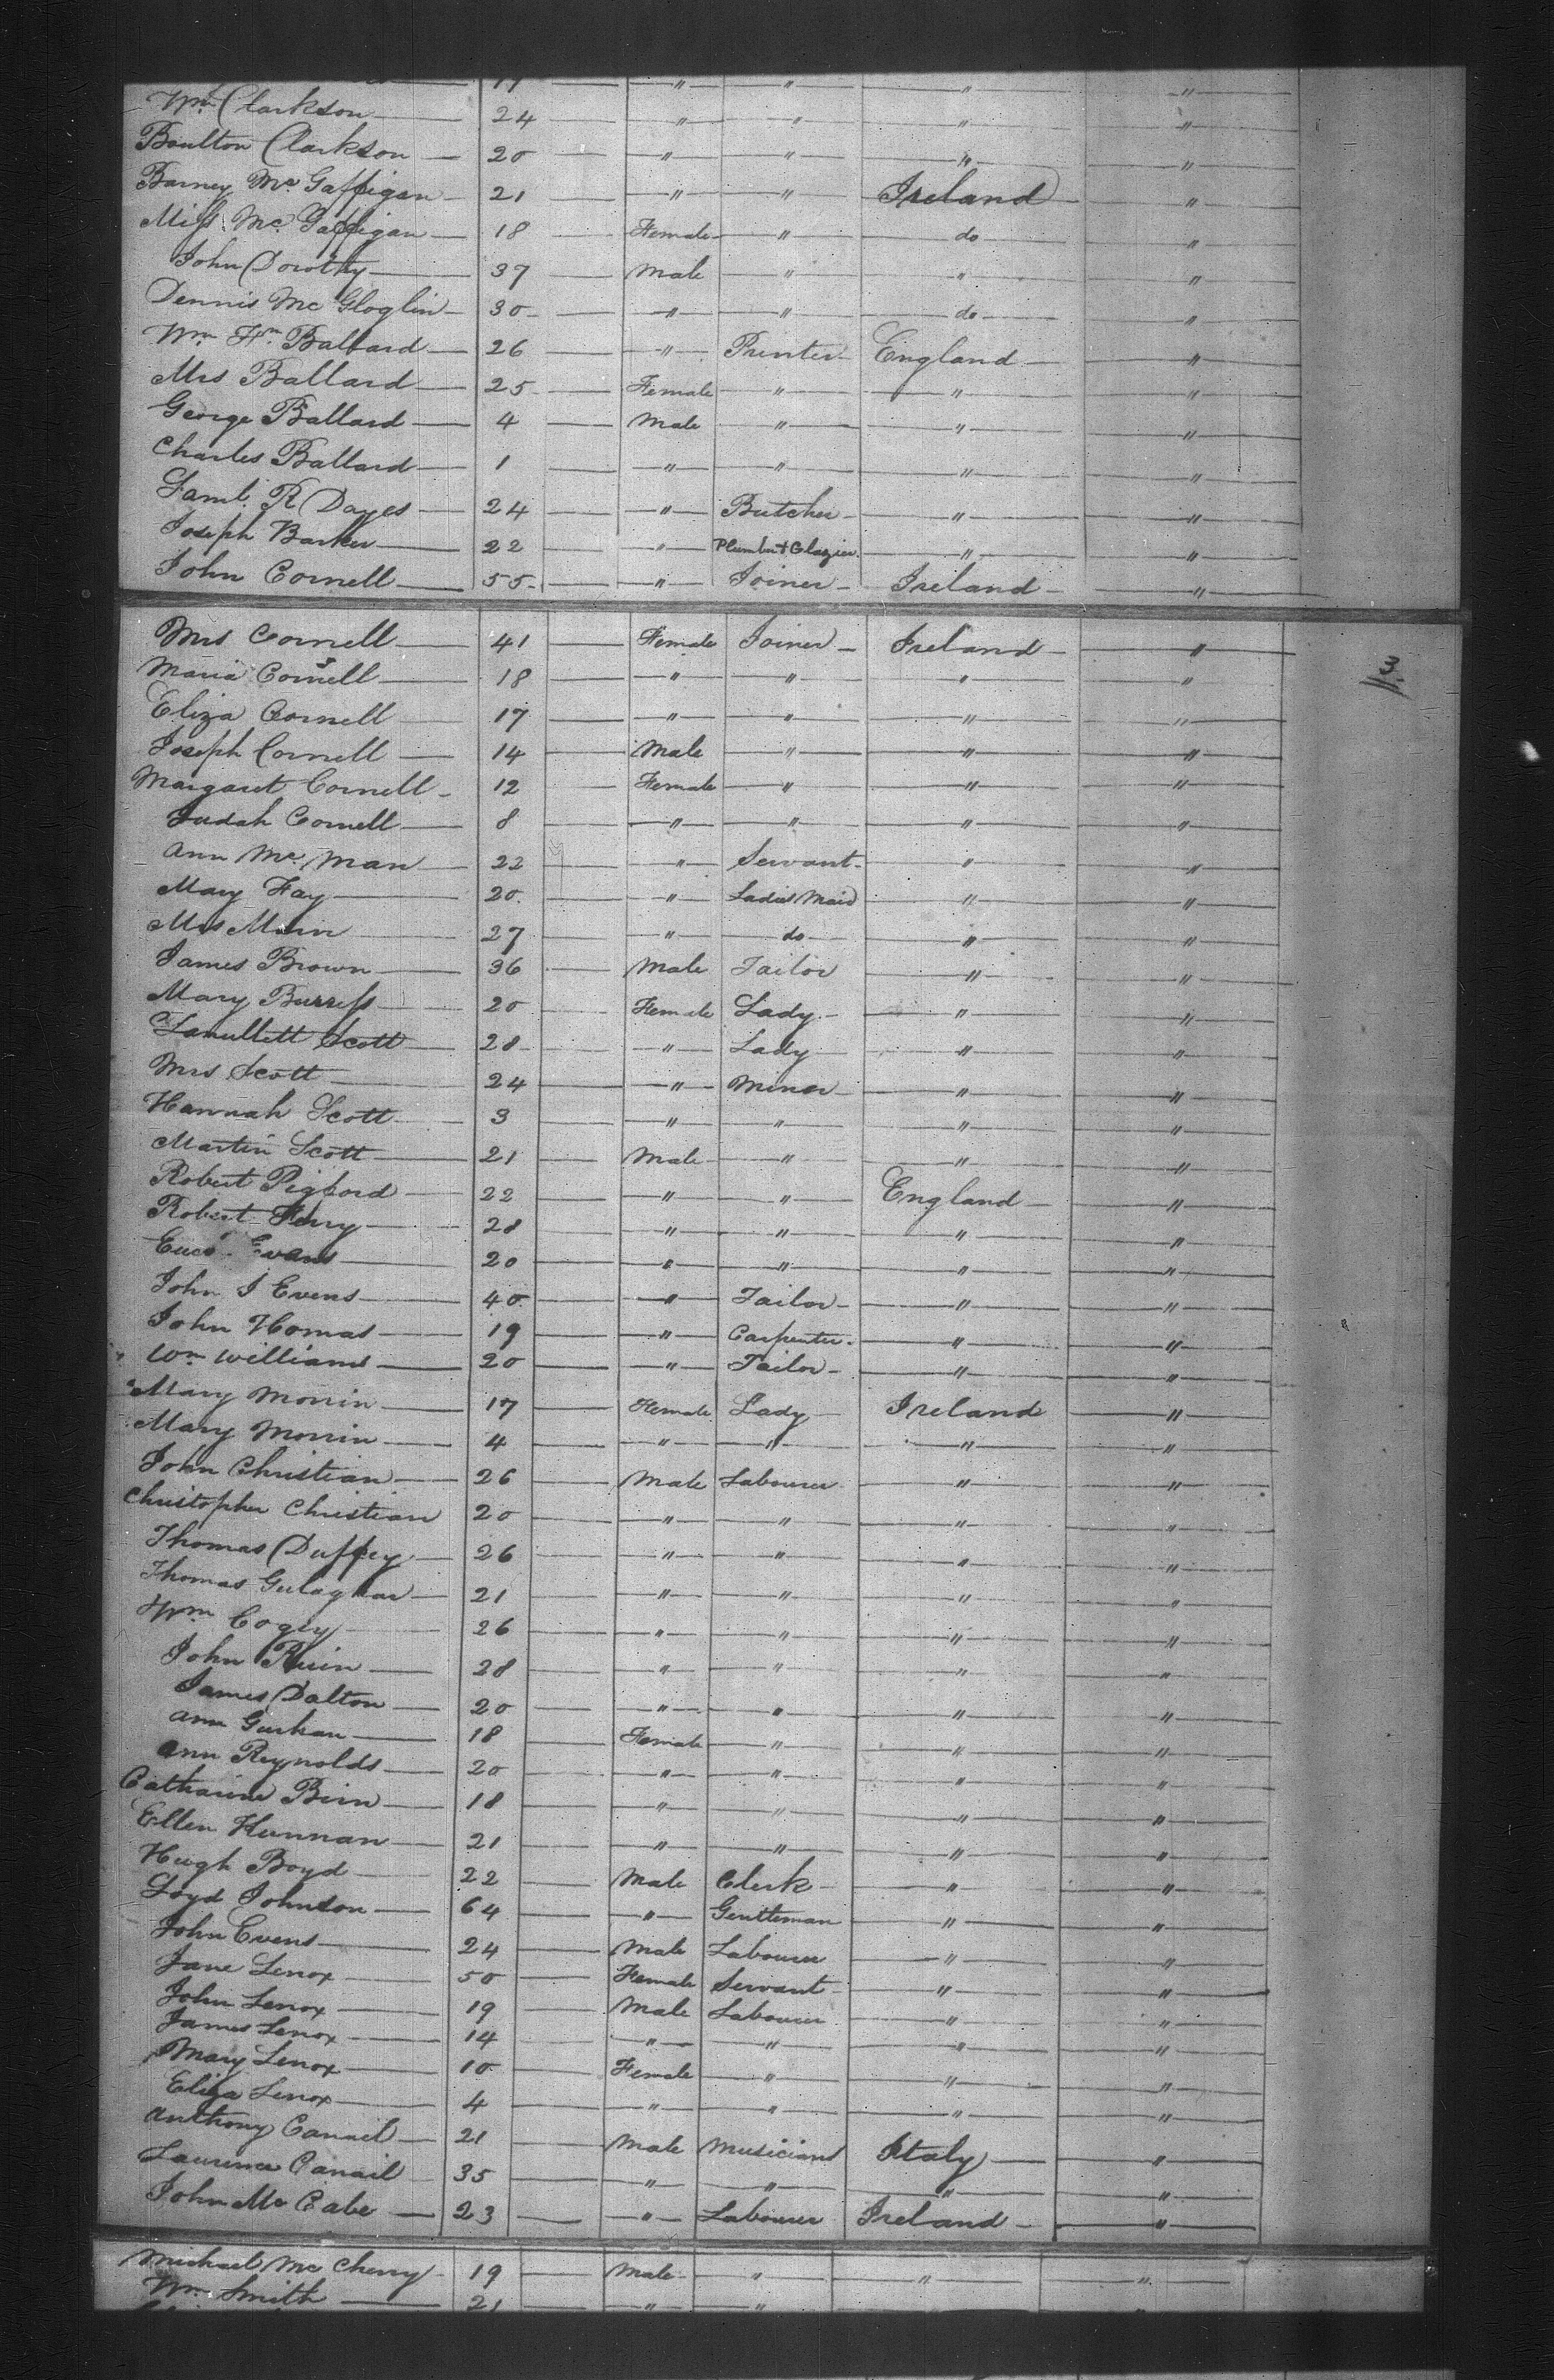 " " " "
Wm Clarkson 24 " " " "
Boulton Clarkson 20 " " " "
Barney Mc Gaffigan 21 " " Ireland "
Miss Mc Gaffigan 18 Female " do "
John Dorothy 37 Male " " "
Dennis Mc Gloglin 30 " " do "
Wm Hm Ballard 26 " Printer England "
Mrs Ballard 25 Female " " "
George Ballard 4 Male " " "
Charles Ballard 1 " " " "
Saml R Dayes 24 " Butcher " "
Joseph Barker 22 " Plumber & Glazier " "
John Cornell 55 " Joiner Ireland "
Mrs Cornell 41 Female Joiner Ireland "
3
Maria Cornell 18 " " " "
Eliza Cornell 17 " " " "
Joseph Cornell 14 Male " " "
Margaret Cornell 12 Female " " "
Judah Cornell 8 " " " "
Ann Mc Man 22 " Servant " "
Mary Fay 20 " Ladies Maid " "
Mrs 27 " do " "
James Brown 36 Male Tailor " "
Mary Burress 20 Female Lady " "
Scott 28 " Lady " "
Mrs Scott 24 " Minor " "
Hannah Scott 3 " " " "
Martin Scott 21 Male " " "
Robert Pigford 22 " " England "
Robert 28 " " " "
Evans 20 " " " "
John J Evens 40 " Tailor " "
John Homas 19 " Carpenter " "
Wm Williams 20 " Tailor " "
Mary Morrin 17 Female Lady Ireland "
Mary Morrin 4 " " " "
John Christian 26 Male Labourer " "
Christopher Christian 20 " " " "
Thomas Duffey 26 " " " "
Thomas 21 " " " "
Wm Cogey 26 " " " "
John Ruin 28 " " " "
James Dalton 20 " " " "
Ann 18 Female " " "
Ann Reynolds 20 " " " "
Catharine Birn 18 " " " "
Ellen Hunnan 21 " " " "
Hugh Boyd 22 Male Clerk " "
Loyd Johnson 64 " Gentleman " "
John Evens 24 Male Labourer " "
Jane Lenox 50 Female Servant " "
John Lenox 19 Male Labourer " "
James Lenox 14 " " " "
Mary Lenox 10 Female " " "
Eliza Lenox 4 " " " "
Anthony Canail 21 Male Musicians Italy "
Laurence Canail 35 " " " "
John Mc Cabe 23 " Labourer Ireland "
Michael Mc Cherry 19 Male " " "
Wm Smith 21 " " "